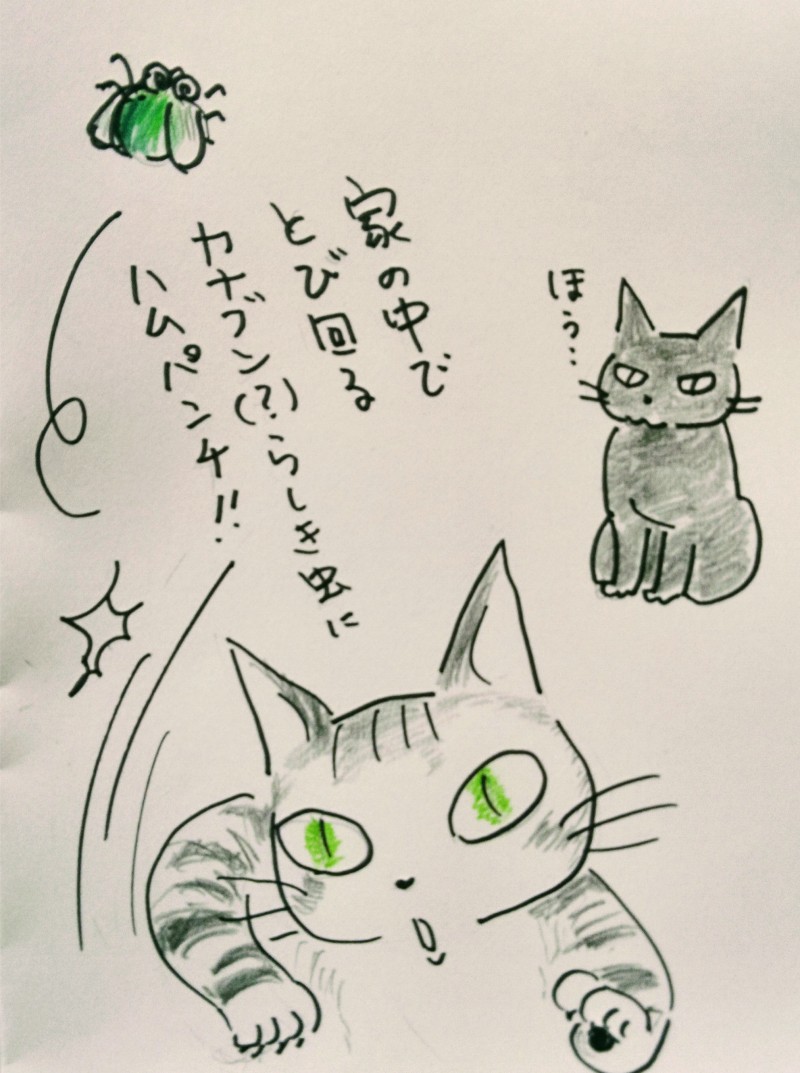 家の中で
とび回る
カナブン(?)らしき虫に
ハムパンチ!!
ほぅ…